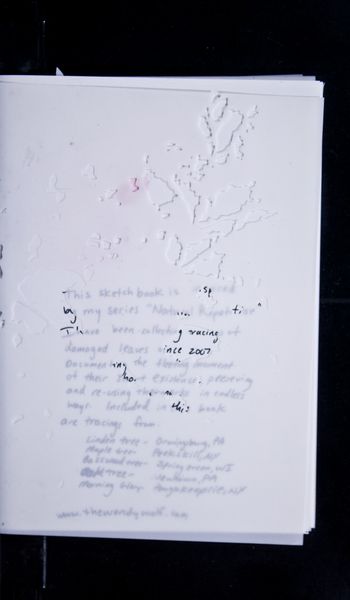 This sketchbook is inspired
by my series "Natural Repetition"
I have been collecting tracings of
damaged leaves since 2007
Documenting the fleeting moment
of their short existence,
and re-using them in endless
ways. Included in this book
are tracings from:
Linden tree - PA
Maple tree - Peekskill, NY
tree - Spring Green, WI
tree - Newtown, PA
Morning Glory - Poughkeepsie, NY